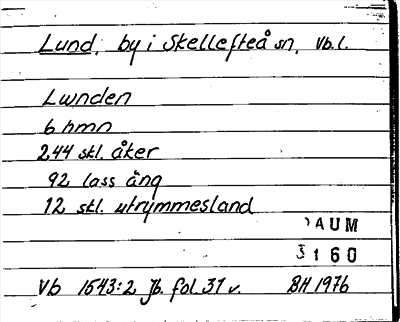 Lund, by i Skellefteå sn, Vb.l.
Lwnden
6 hmn
244 skl. åker
92 lass äng
12 skl. utrymmesland
AUM
3160
Vb 1543:2 Jb. fol. 31 v. BH 1976